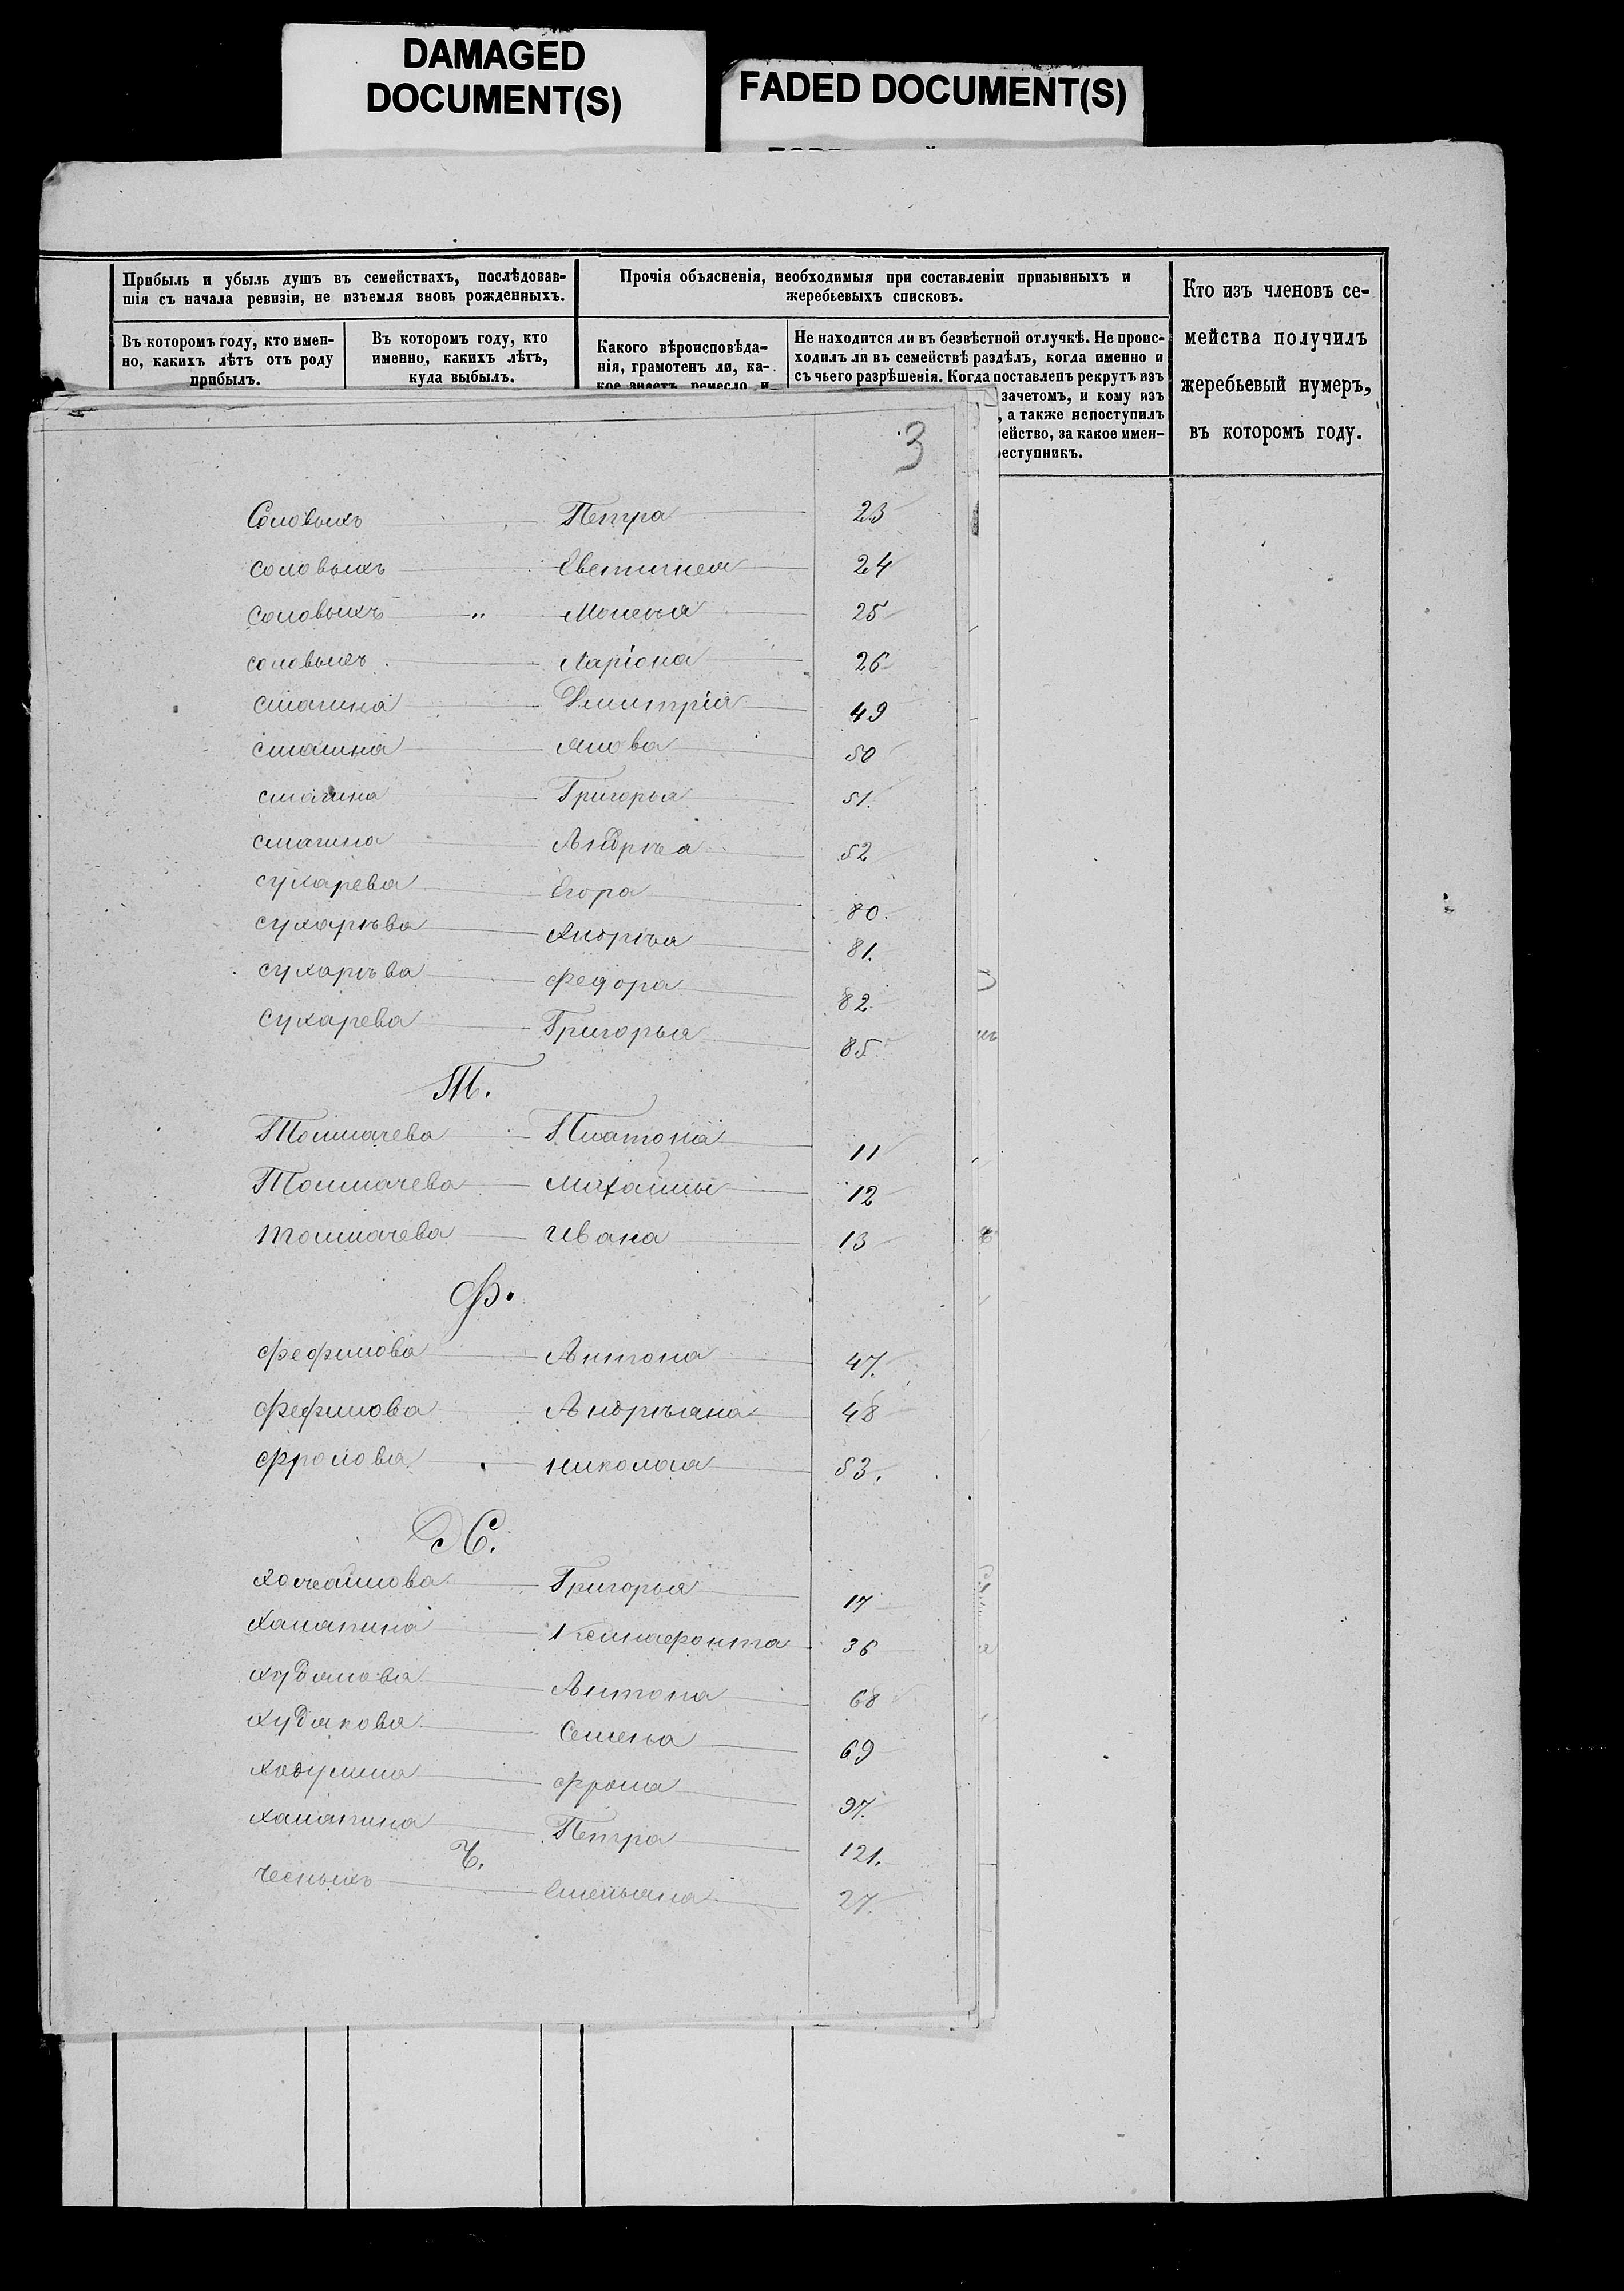 DAMAGED
DOCUMENT(S)
FADED DOCUMENT(S)
Прибыль и убыль душъ въ семействахъ, послѣдовав-
шія съ начала ревизіи, не изъемля вновь рожденныхъ.
Въ которомъ году, кто имен-
но, какихъ лѣтъ отъ роду
прибылъ.
Въ которомъ году, кто
именно, какихъ лѣтъ,
куда выбылъ.
Прочія объясненія, необходимыя при составленіи призывныхъ и
жеребьевыхъ списковъ.
Какого вѣроисповѣда-
нія, грамотенъ ли, ка-
кое знаетъ ремесло и
Не находится ли въ безвѣстной отлучкѣ. Не проис-
ходилъ ли въ семействѣ раздѣлъ, когда именно и
съ чьего разрѣшенія. Когда поставленъ рекрутъ изъ
зачетомъ, и кому изъ
, а также непоступилъ
ейство, за какое имен-
реступникъ.
Кто изъ членовъ се-
мейства получилъ
жеребьевый нумеръ,
въ которомъ году.
3
Соловыхъ Петра 23
соловыхъ Евстигнея 24
соловыхъ „ Мокея 25
соловыхъ Ларіона 26
смагина Дмитрія 49
смагина Якова 50
смагина Григорья 51.
смагина Андрѣа 52
сухарева Егора 80.
сухарѣва Андрѣа 81.
сухарѣва Федора 82.
сухарева Григорья 85.
Т.
Толмачева Платона 11
Толмачева михаилы 12
толмачева Ивана 13
Ф.
фефилова Антона 47.
фефилова Андрѣяна 48
фролова николая 53.
Х.
Григорья 17
халапина 36
худякова Антона 68
худякова Семена 69
фрола 97.
халапина Петра 121.
Ч.
чесныхъ Степана 27.